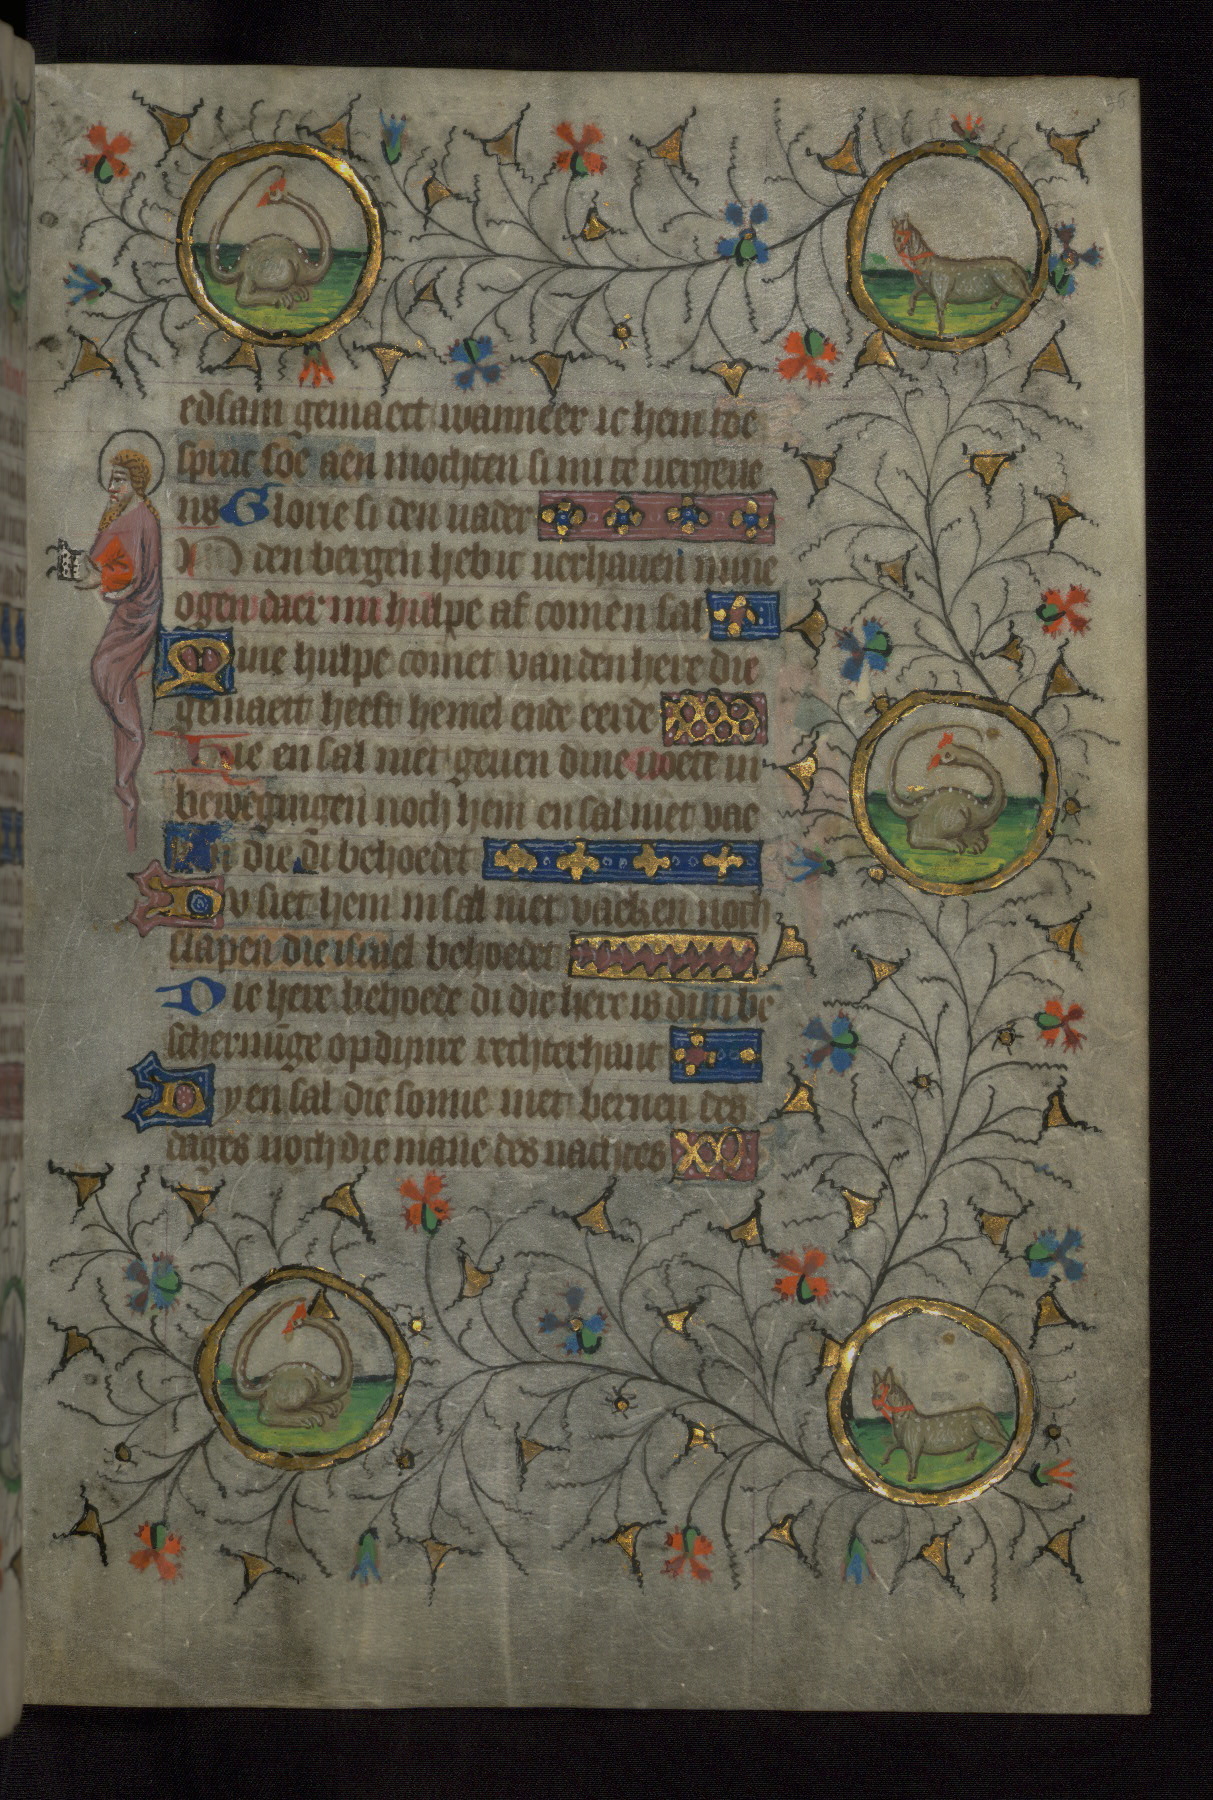 edsam gemaect wanneer ic hem toe
sprac soe aen vochten si mi te vergeue
ns Glorie si den vader
In den bergen heb ic verhauen mine
ogen daer mi hulpe af comen sal
Mine hulpe comet van den here die
gemaect heeft hemel ende eerde
Hie en sal niet geuen dine voete in
bewegingen noch hem en sal niet vae
ken die di behoedet
Nv siet hem in sal niet vaeken noch
slapen die israel behoedet
Die here behoede di die here is dijn be
schermīge op dijnre rechterhant
Dy en sal die sonne niet bernen des
dages noch die mane des nachtes